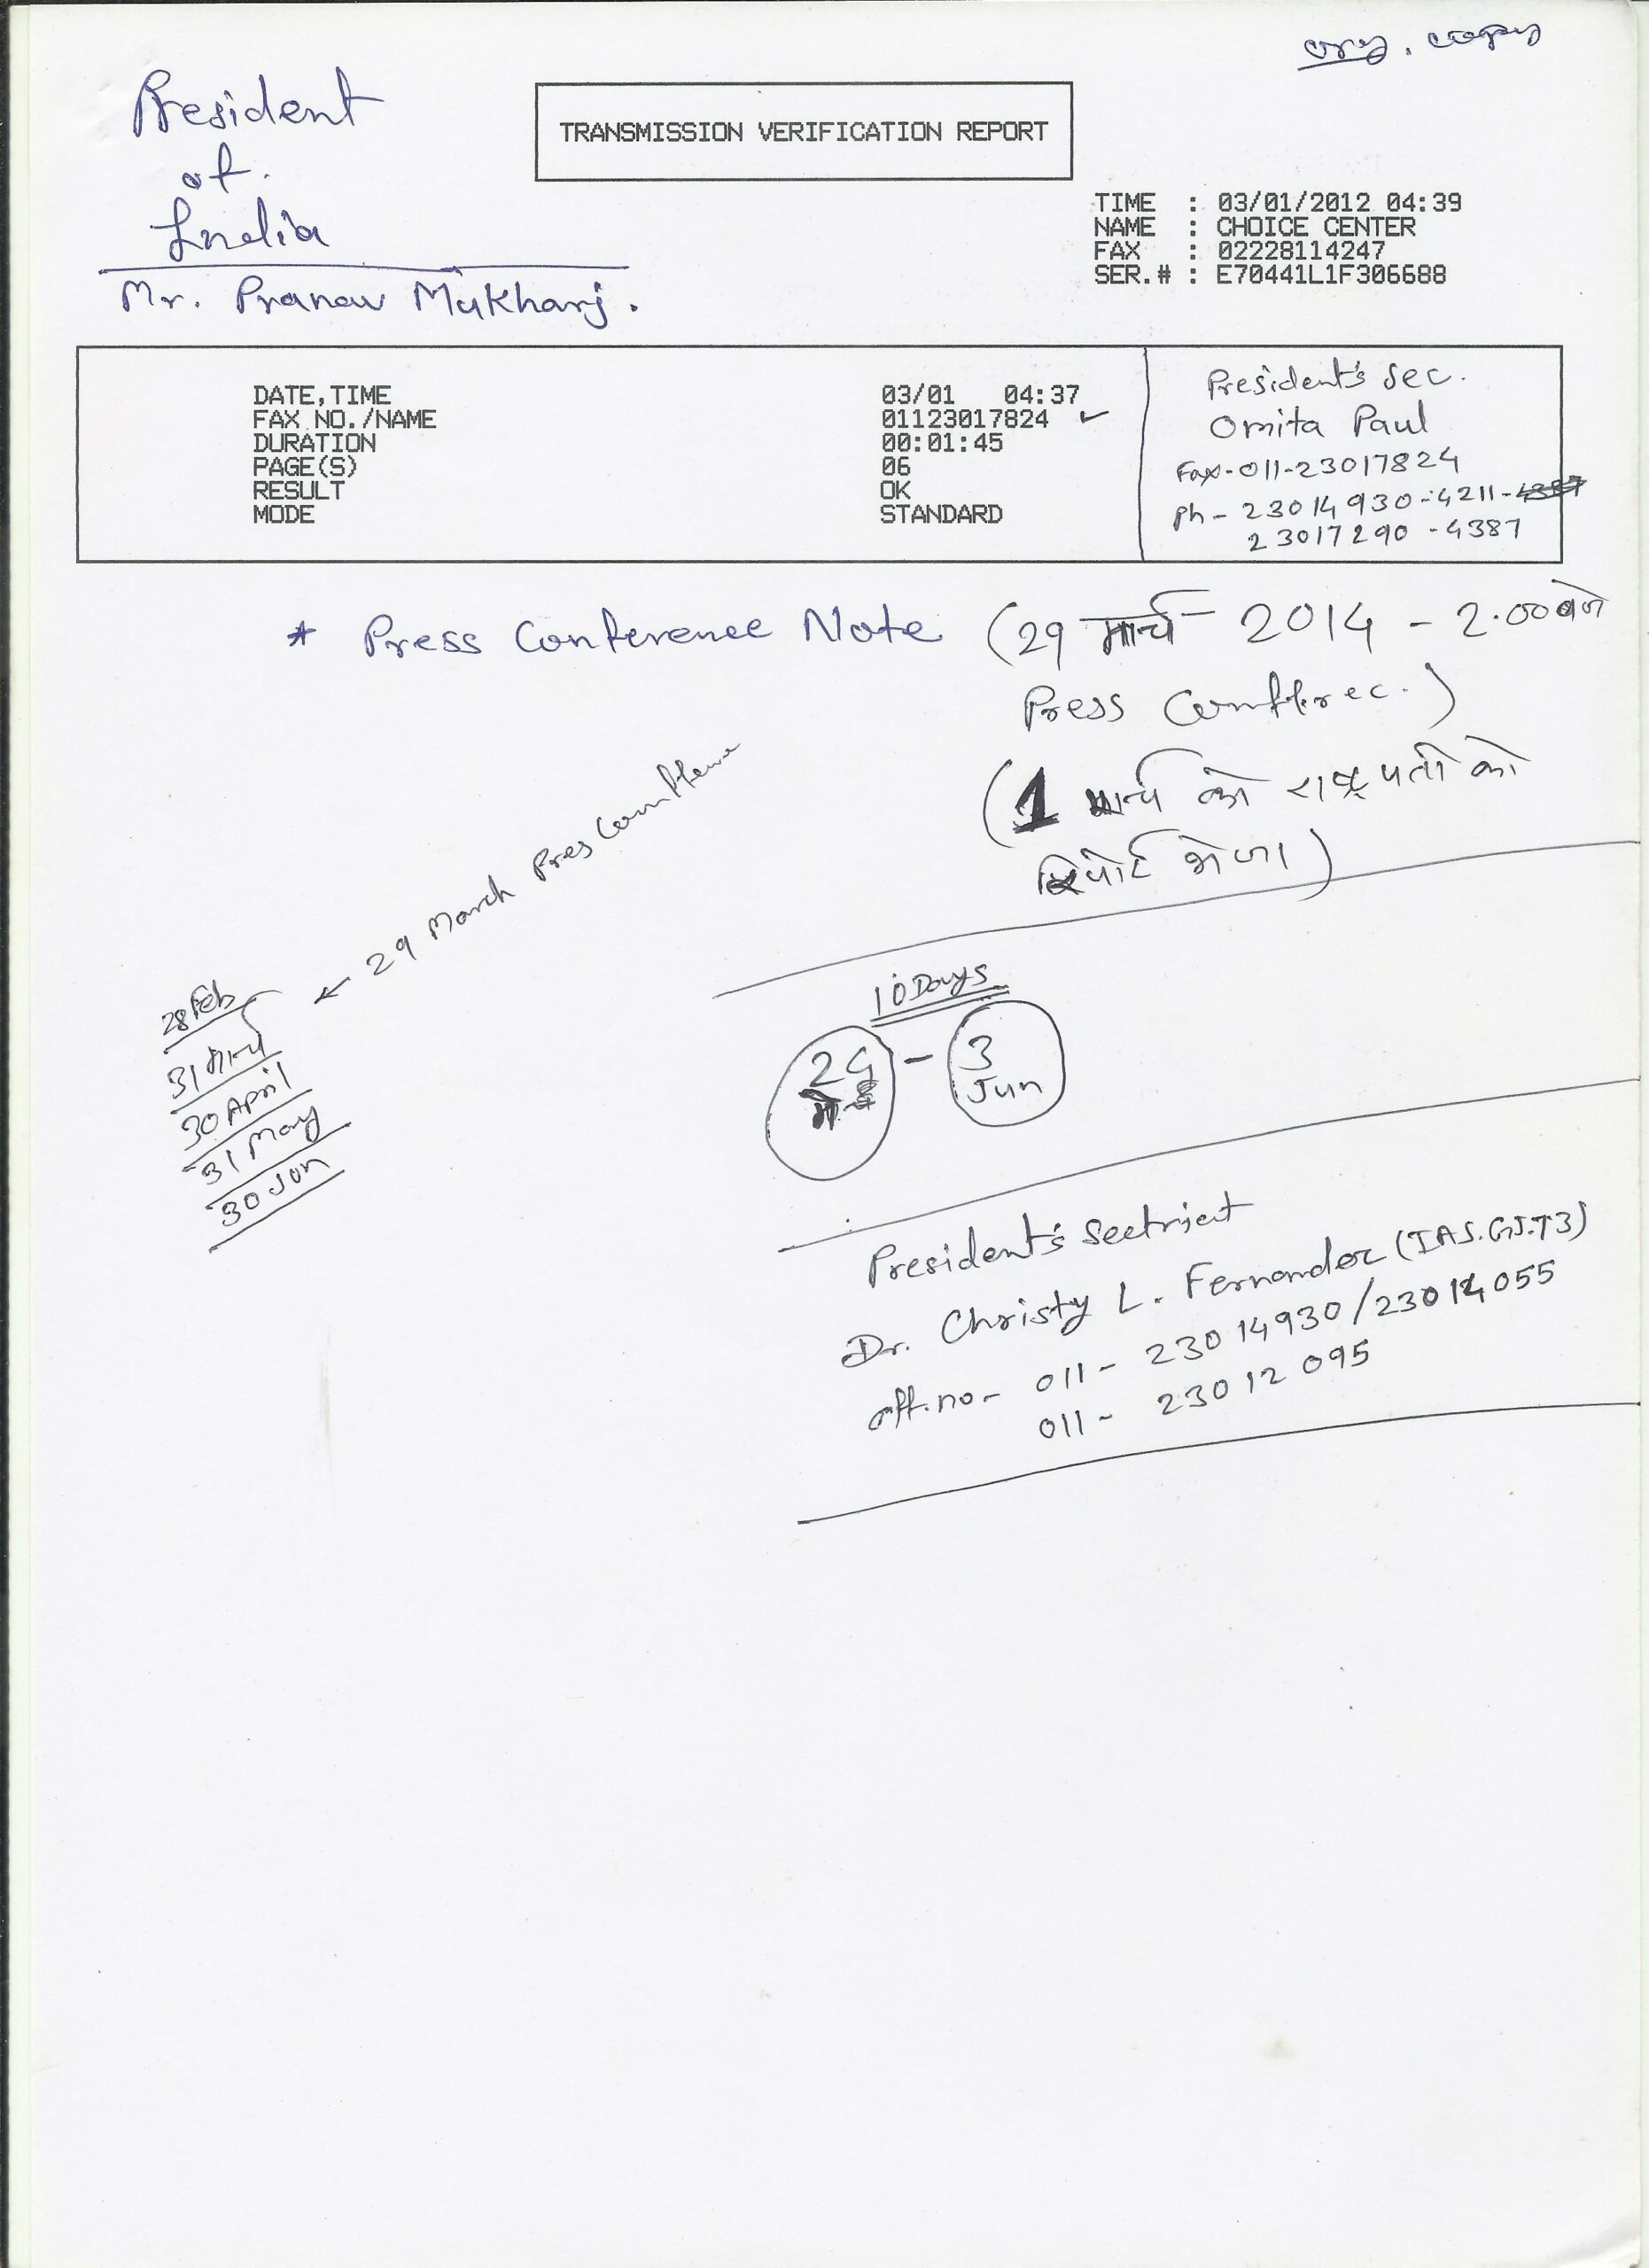 org. copy
President
of.
India
Mr. Pranav Mukharj.
TRANSMISSION VERIFICATION REPORT
TIME : 03/01/2012 04:39
NAME : CHOICE CENTER
FAX : 02228114247
SER.# : E70441L1F306688
DATE,TIME 03/01 04:37
FAX NO./NAME 01123017824 ✓
DURATION 00:01:45
PAGE(S) 06
RESULT OK
MODE STANDARD
President's sec.
Omita Paul
Fax-011-23017824
Ph - 23014930-4211-4387
23017290 -4387
* Press Conference Note (29 मार्च 2014 - 2.00 बजे
Press Conferec.)
(1 मार्च को राष्ट्रपती को
रिपोर्ट भेजा)
← 29 March Pres
28 Feb
31 मार्च
30 April
31 May
30 Jun
10 Days
- 3
Jun
President's Sectriect
Dr. Christy L. Fernandez (IAS.GJ.73)
off.no- 011- 23014930/23014055
011- 23012095